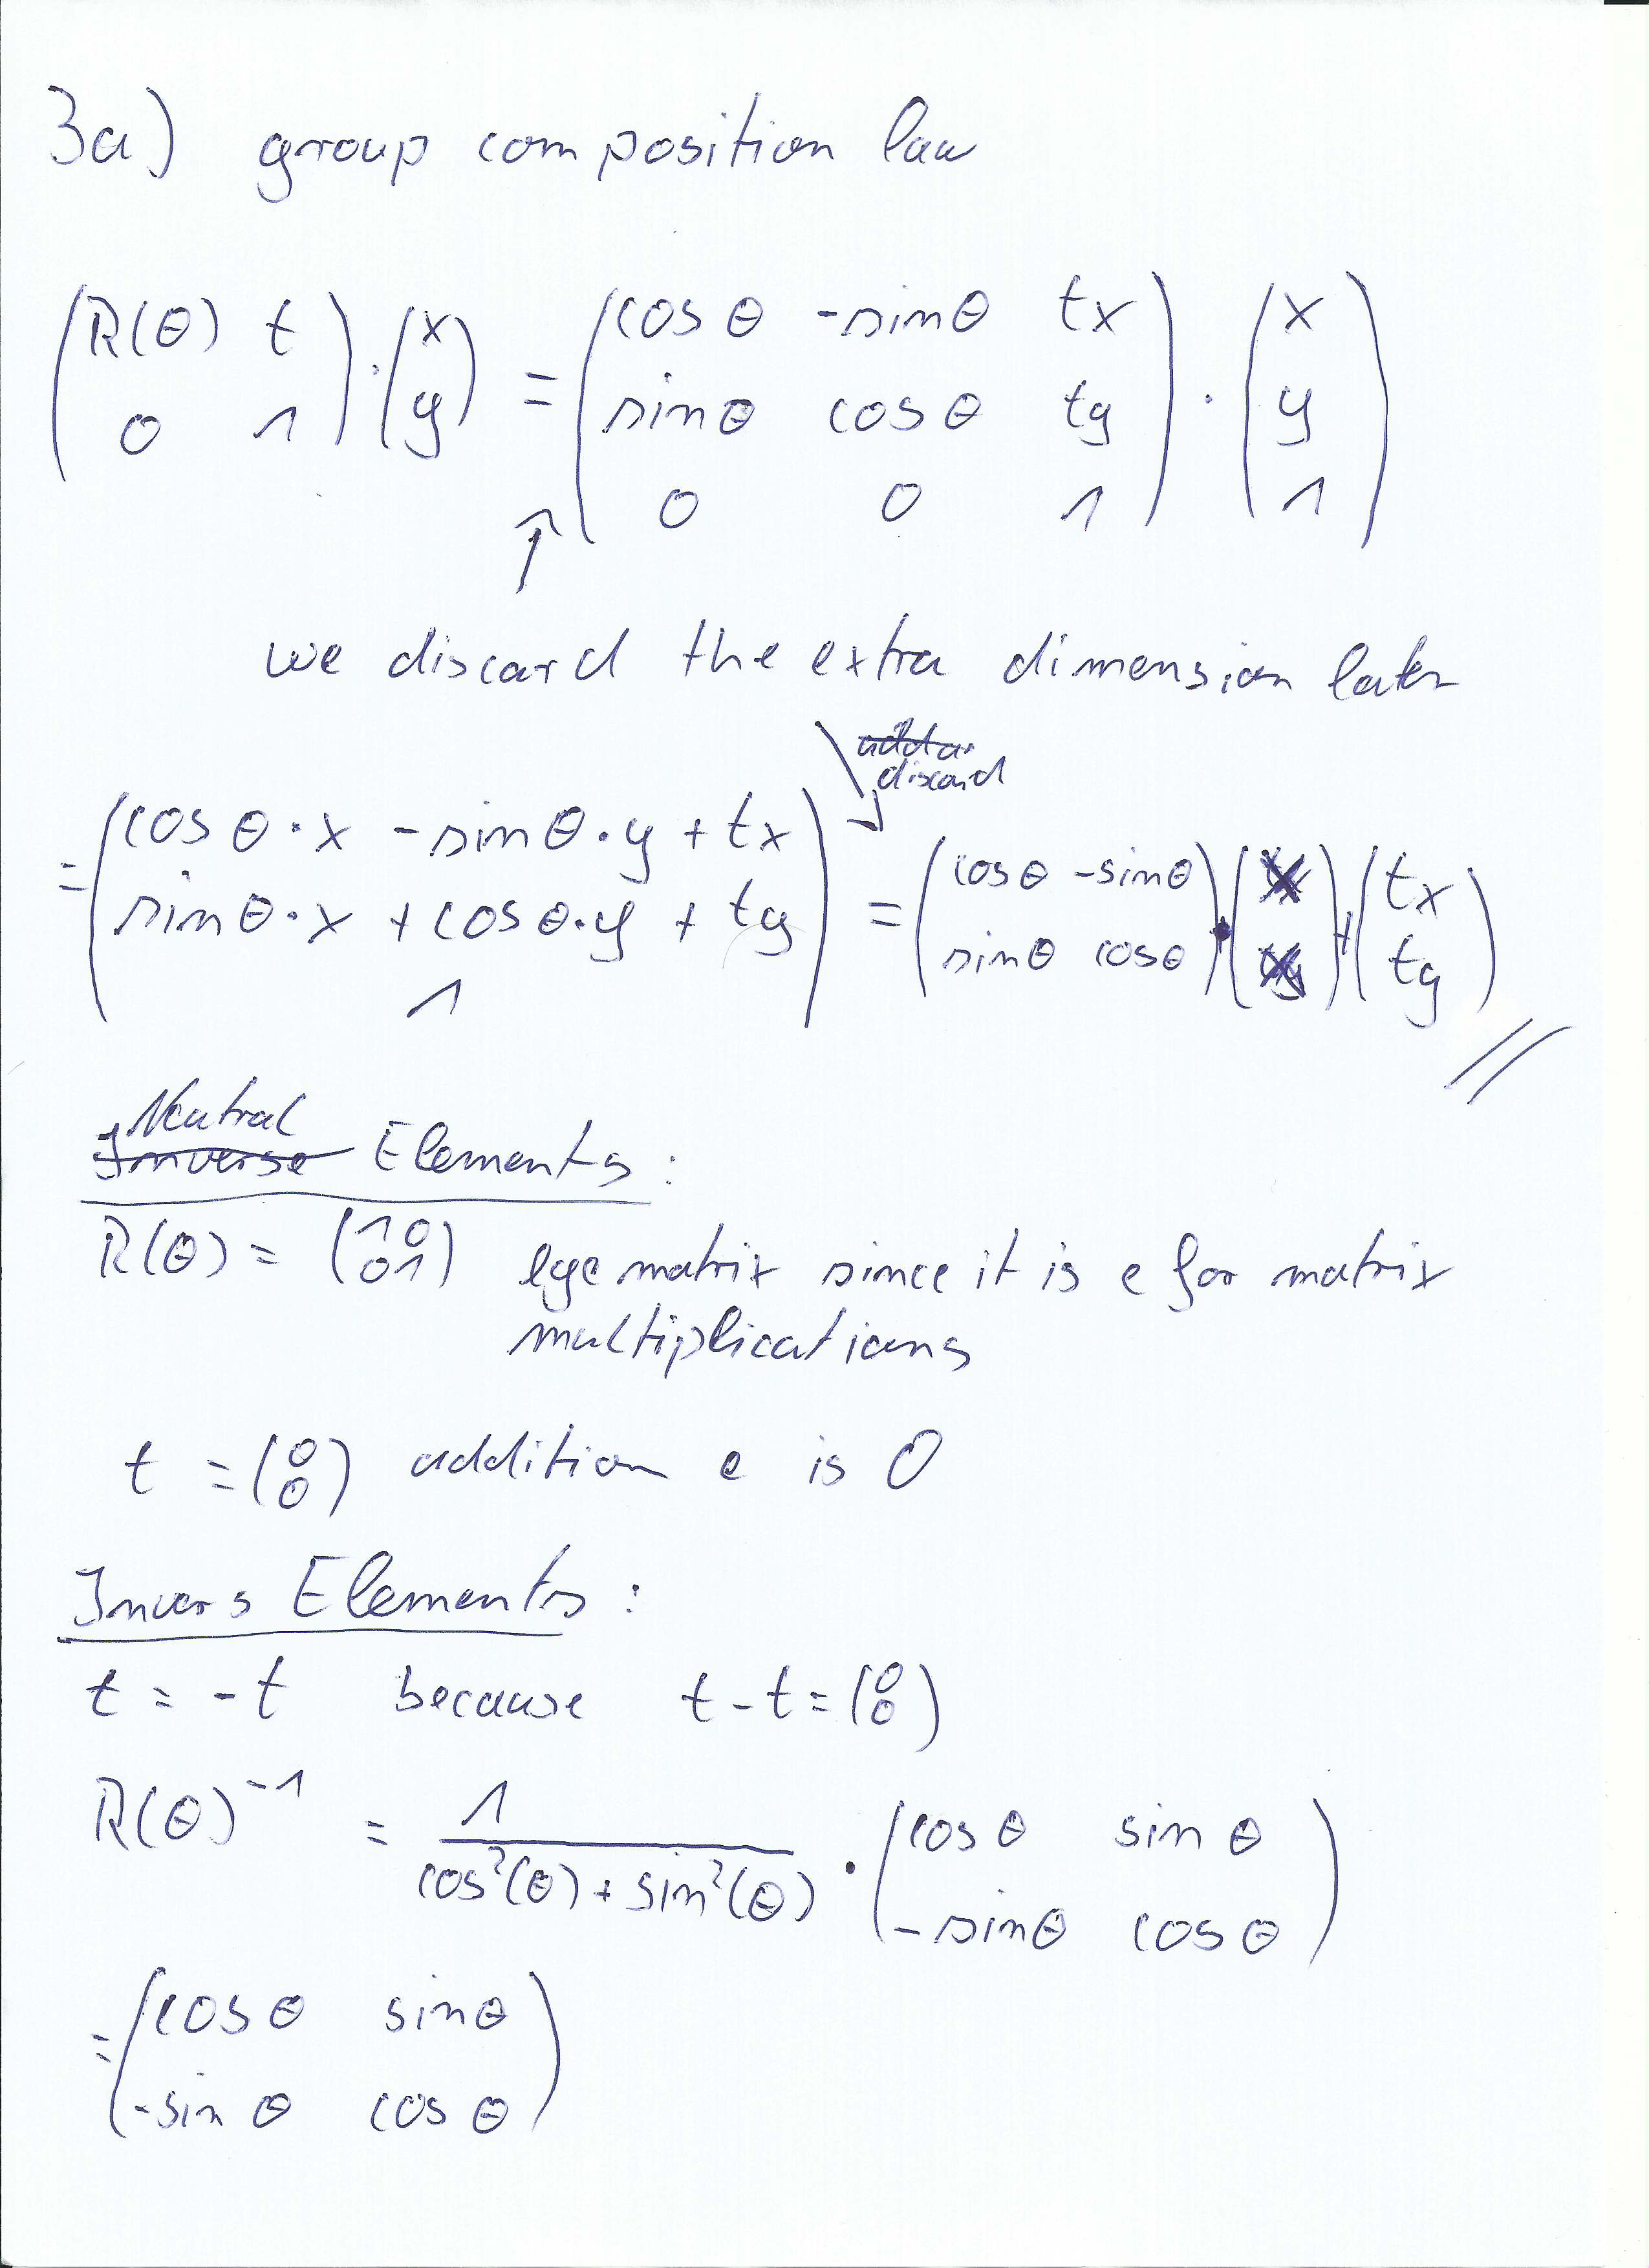 3a) group composition law
(R(θ) t; 0 1) · (x; y) = (cos θ -sin θ tx; sin θ cos θ ty; 0 0 1) · (x; y; 1)
↑
we discard the extra dimension later
discard
= (cos θ · x - sin θ · y + tx; sin θ · x + cos θ · y + ty; 1) = (cos θ -sin θ; sin θ cos θ) · (x; y) + (tx; ty) //
Neutral
Inverse Elements:
R(θ) = (1 0; 0 1) eye matrix since it is e for matrix
multiplications
t = (0; 0) addition e is 0
Invers Elements:
t = -t because t - t = (0; 0)
R(θ)⁻¹ = 1 / (cos²(θ) + sin²(θ)) · (cos θ sin θ; -sin θ cos θ)
= (cos θ sin θ; -sin θ cos θ)